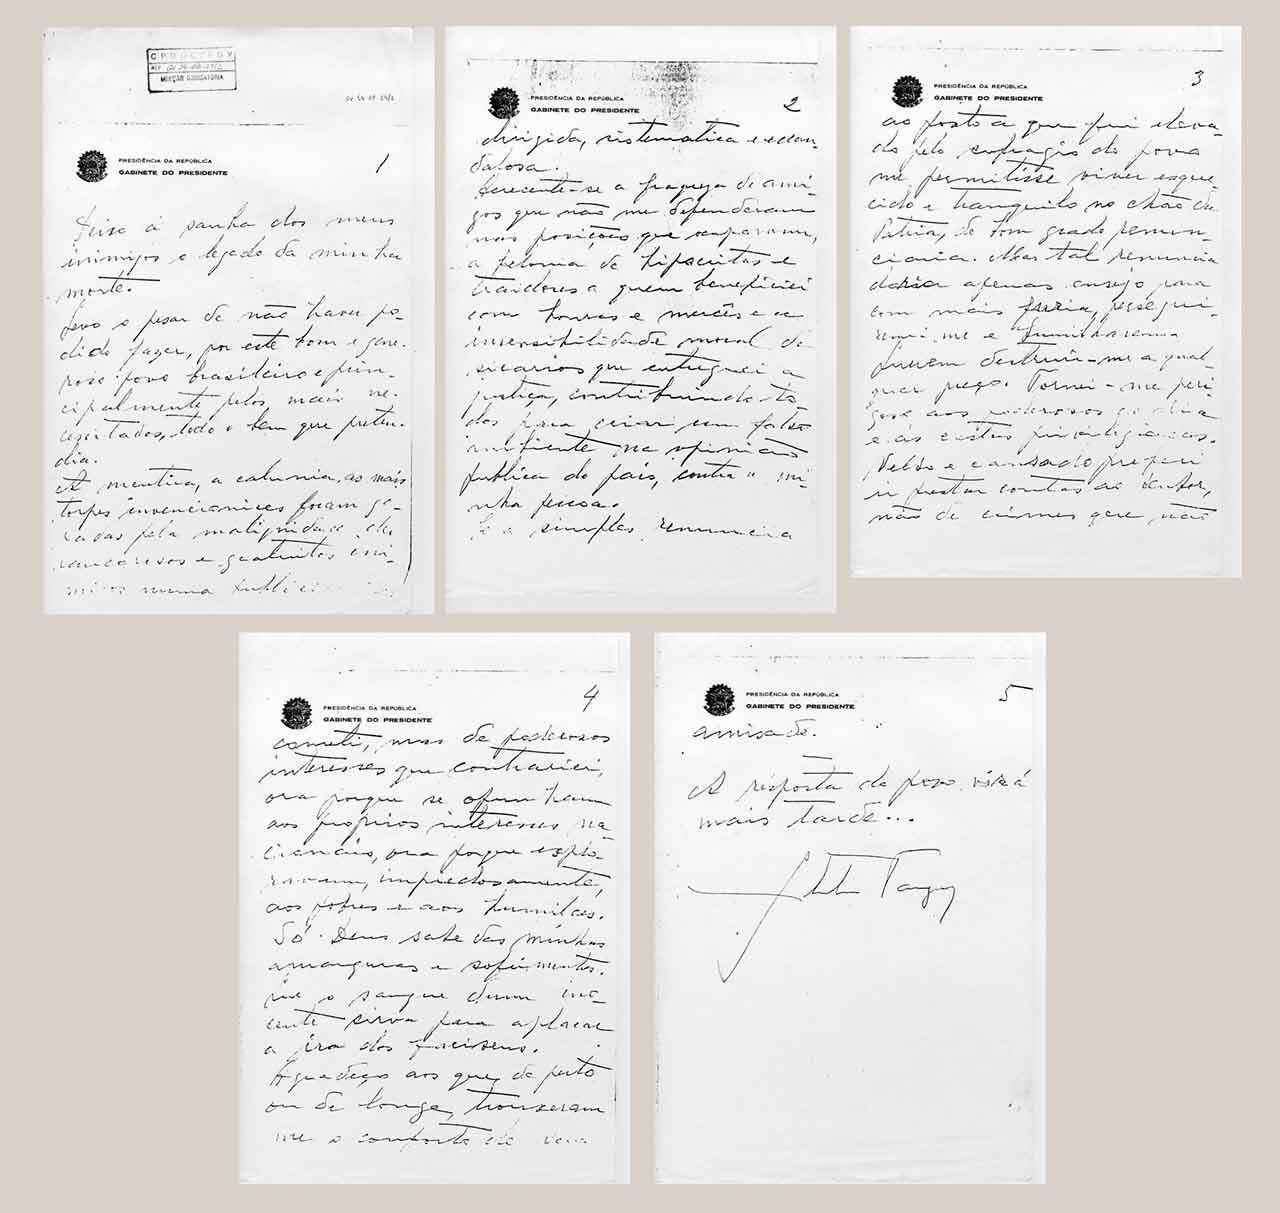 CPDOC/FGV
PRESIDÊNCIA DA REPÚBLICA
GABINETE DO PRESIDENTE
1
Deixo á sanha dos meus
inimigos o legado da minha
morte.
Levo o pesar de não haver po-
dido fazer, por este bom e gene-
roso povo brasileiro e prin-
cipalmente pelos mais ne-
cessitados, todo o bem que preten-
dia.
A mentira, a calumnia, as mais
torpes invencionices foram ge-
radas pela malignidade de
rancorosos e gratuitos ini-
migos numa publici
PRESIDÊNCIA DA REPÚBLICA
GABINETE DO PRESIDENTE
2
dirigida, sistematica e escan-
dalosa.
Acrecente-se a fraqueza de ami-
gos que não me defenderam
nas posições que ocuparam,
a felonia de hipocritas e
traidores a quem beneficiei
com honras e mercês e a
insensibilidade moral de
sicarios que entreguei á
justiça, contribuindo to-
dos para criar um falso
ambiente na opinião
publica do país, contra a mi-
nha pessoa.
Se a simples renuncia
PRESIDÊNCIA DA REPÚBLICA
GABINETE DO PRESIDENTE
3
ao posto a que fui eleva-
do pelo sufragio do povo
me permitisse viver esque-
cido e tranquilo no chão da
Patria, de bom grado renun-
ciaria. Mas tal renuncia
daria apenas ensejo para
com mais furia, persegui-
rem-me e humilharem
Querem destruir-me a qual
quer preço. Tornei-me peri-
goso aos poderosos do dia
e ás castas privilegiadas.
Velho e cansado preferi
ir prestar contas ao Senhor,
não de crimes que não
PRESIDÊNCIA DA REPÚBLICA
GABINETE DO PRESIDENTE
4
cometi, mas de poderosos
interesses que contrariei,
ora porque se opunham
aos proprios interesses na-
cionais, ora porque explo-
ravam, impiedosamente,
aos pobres e aos humildes.
Só Deus sabe das minhas
amarguras e sofrimentos.
Que o sangue dum ino-
cente sirva para aplacar
a ira dos fariseus.
Agradeço aos que, de perto
ou de longe, trouxeram
me o conforto de sua
PRESIDÊNCIA DA REPÚBLICA
GABINETE DO PRESIDENTE
5
amisade.
A resposta do povo virá
mais tarde...
Getulio Vargas